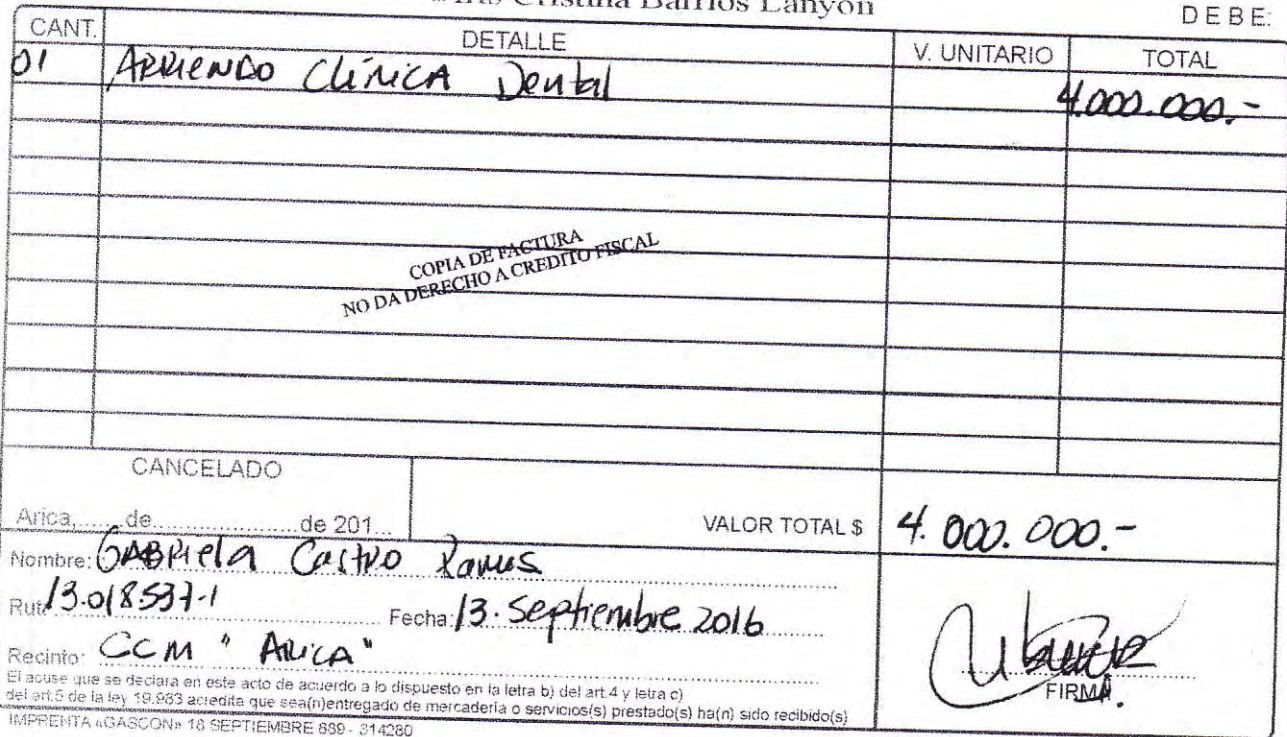 Iris Cristina Barrios Lanyon
DEBE:
CANT. DETALLE V. UNITARIO TOTAL
01 ARRIENDO CLÍNICA Dental 4.000.000.-
COPIA DE FACTURA
NO DA DERECHO A CREDITO FISCAL
CANCELADO
Arica,......de......................de 201...
VALOR TOTAL $ 4.000.000.-
Nombre: GABRIela Castro Ramos
Rut: 13.018537-1 Fecha: 13. Septiembre 2016
Recinto: CCM " ARICA"
FIRMA.
El acuse que se declara en este acto de acuerdo a lo dispuesto en la letra b) del art.4 y letra c)
del art.5 de la ley 19.983 acredita que sea(n)entregado de mercaderia o servicios(s) prestado(s) ha(n) sido recibido(s)
IMPRENTA «GASCON» 18 SEPTIEMBRE 889 - 314280